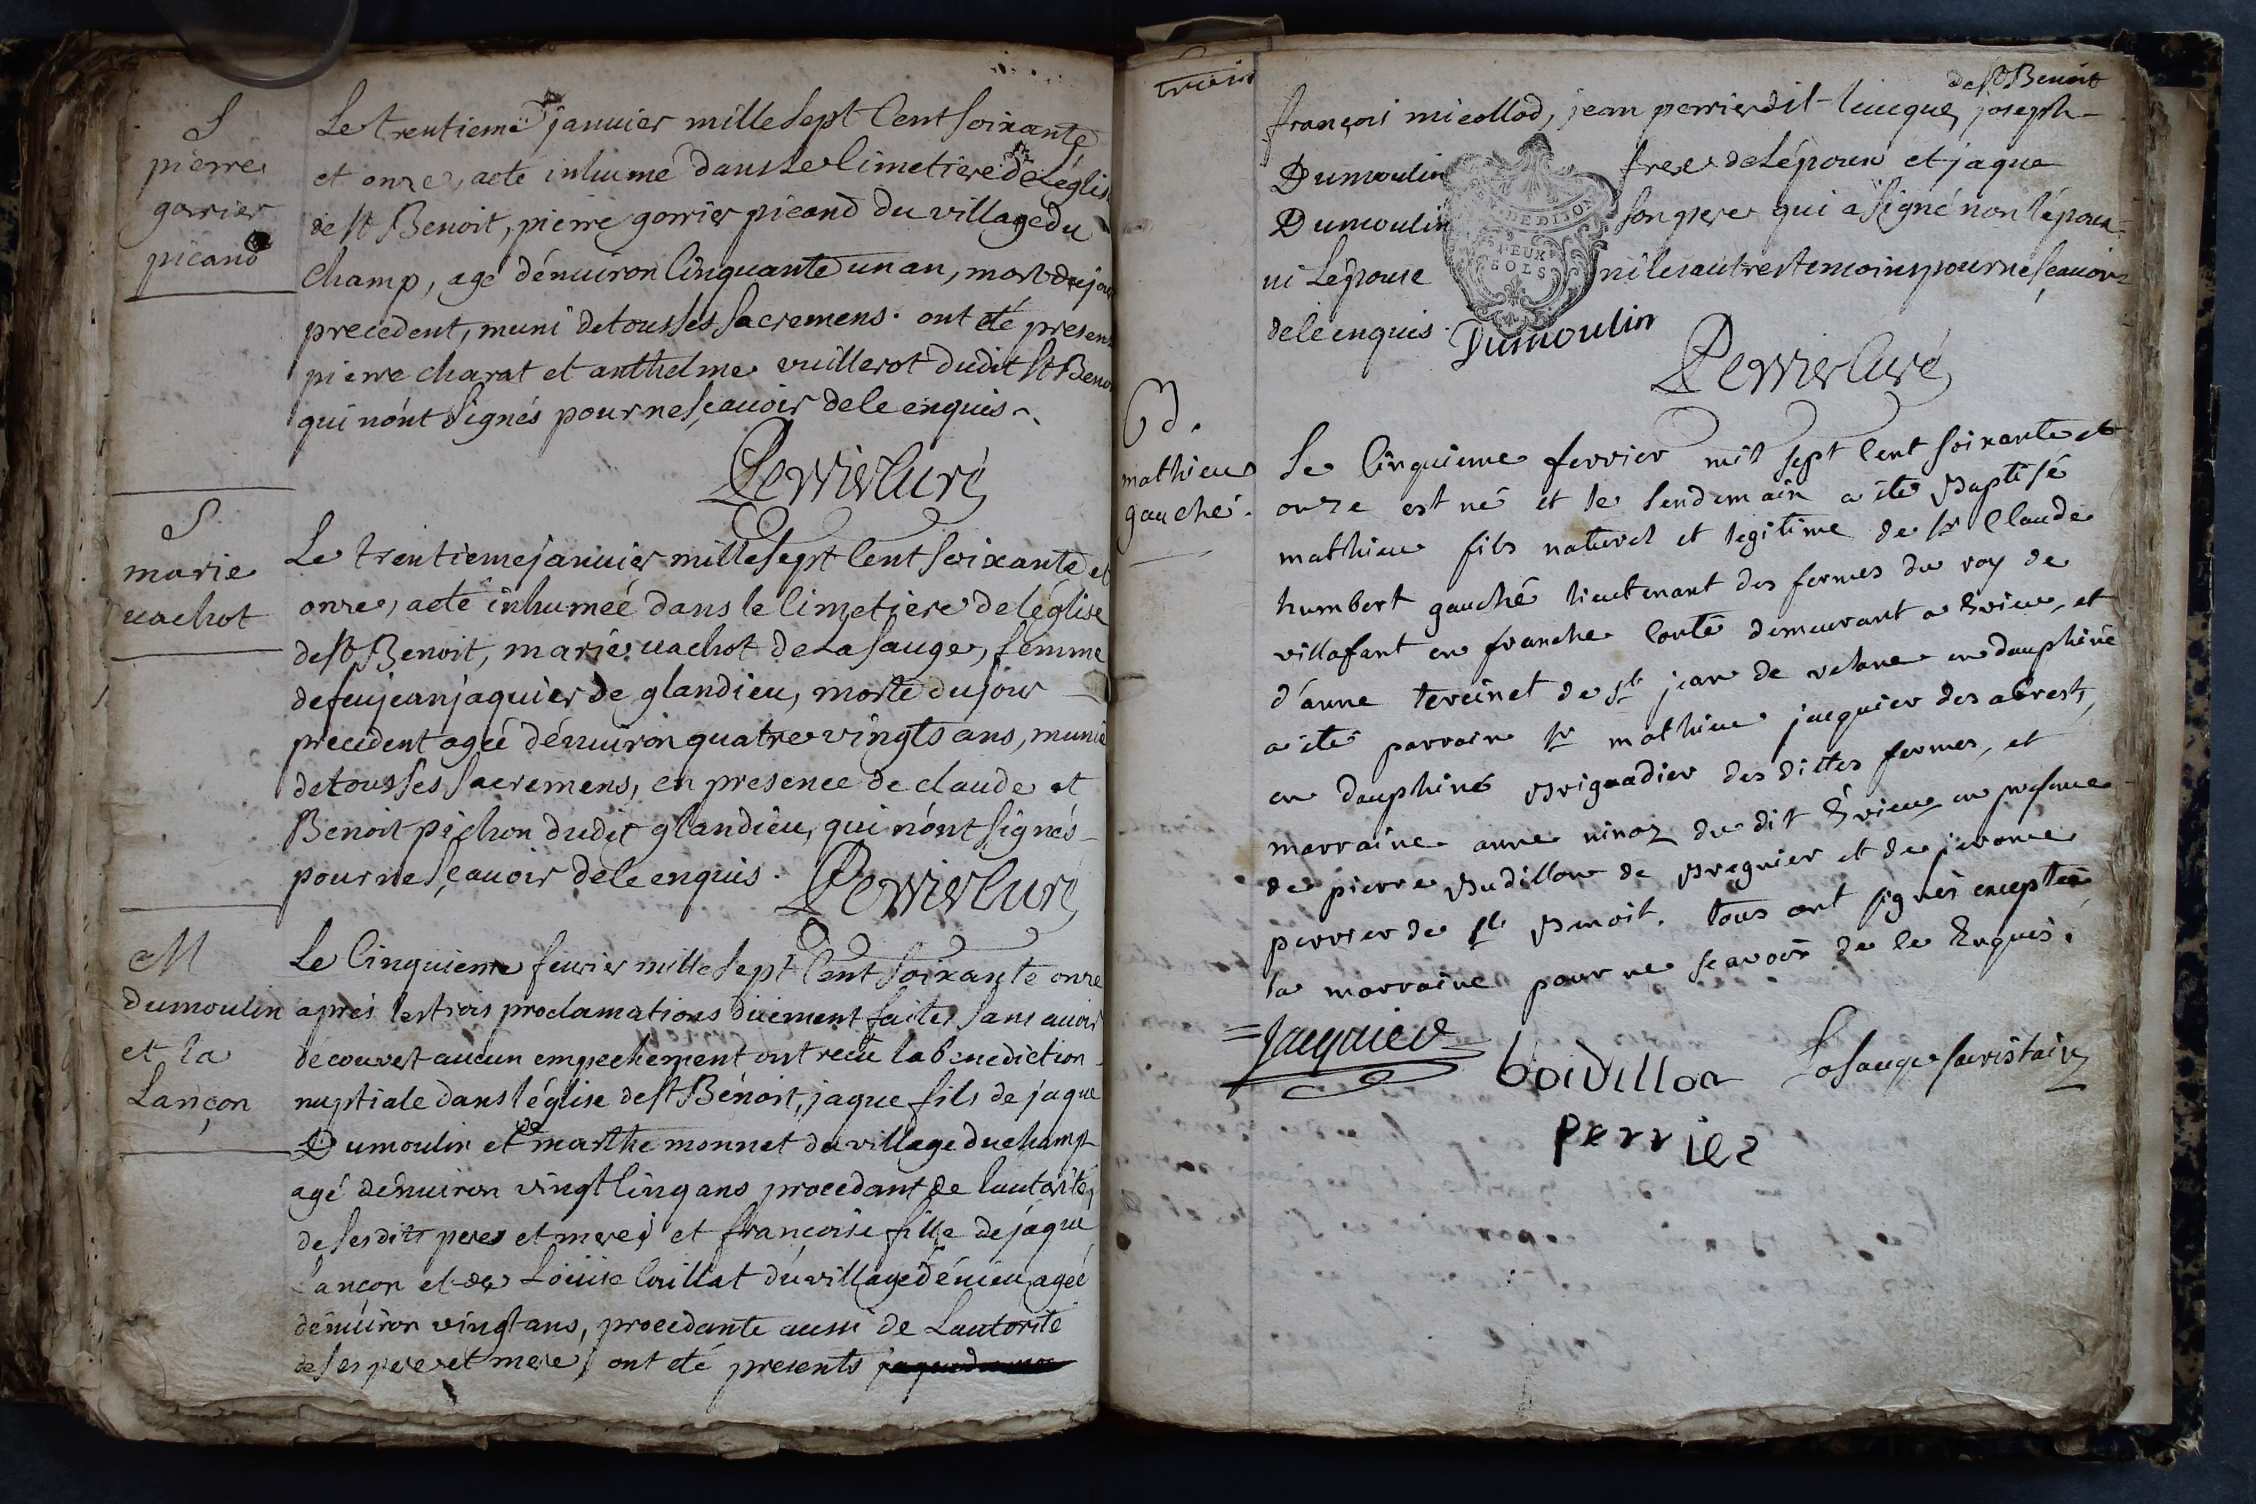 S
pierre
gorrier
picand
Le trentieme janvier mille sept Cent soixante
et onze, a eté inhumé dans Le Cimetiere de L'églis
de st Benoit, pierre gorrier picand du village du
champ, agé d'énuiron Cinquante un an, mort du jour
precedent, muni de tous ses sacremens. ont eté presens
pierre charat et anthelme vuillerot dudit st Beno
qui n'ont signés pour ne sçauoir de le enquis
Perrier Curé
S
marie
vachot
Le trentieme januier mille sept Cent soixante et
onze, a eté inhumeé dans le Cimetiere de l'église
de st Benoit, marie vachot de La sauge, femme
de feu jean jaquier de glandieu, morte du jour
precedent ageé d'énuiron quatre vingts ans, munie
de tous ses sacremens, en presence de claude et
Benoit pichon dudit glandieu, qui n'ont signés
pour ne sçauoir de le enquis.
Perrier Curé
M
dumoulin
et la
Lançon
Le Cinquieme feurier mille sept Cent soixante onze
aprés les trois proclamations düement faites sans auoir
découvert aucun empechement ont recu la benediction
nuptiale dans l'église de st Bénoit, jaque fils de jaque
Dumoulin et de marthe monnet du village du champ
agé d'énuiron vingt Cinq ans procedant de l'autorité
de ses dits peres et meres et françoise fille de jaque
Lançon et de Loüise Caillat du village d'énieu, ageé
d'énuiron vingt ans, procedante aussi de Lautorité
de ses pere et mere, ont eté presents
de st Benoit
françois micollod, jean perrier dit Lucque, joseph
Dumoulin frere de L'époux et jaque
Dumoulin son pere qui a signé non l'époux
ni L'épouse ni les autres temoins pour ne sçauoir
de le enquis.
GEN. DE DIJON
DEUX
SOLS
Dumoulin
Perrier Curé
B.
mathieu
gauché.
Le Cinquieme fevrier mil sept Cent soixante et
onze est né et le lendemain a ité Baptisé
mathieu fils naturel et legitime de sr Claude
humbert gauché lieutenant des fermes du roy de
villafant en franche Conté demeurant a Evieu, et
d'anne tercinet de st jean de velane en dauphiné
a ité parrain sr mathieu jacquier des abrests
en dauphiné Brigadier des dittes fermes, et
marraine anne ninoz du dit Evieu en presence
de pierre Budillon de Bregnier et de jerome
perrier de st Benoit. tous ont signés exceptée
la marraine pour ne scavoir de le Enquis.
Jacquier
boidillon
Lasauge sacristain
perrier